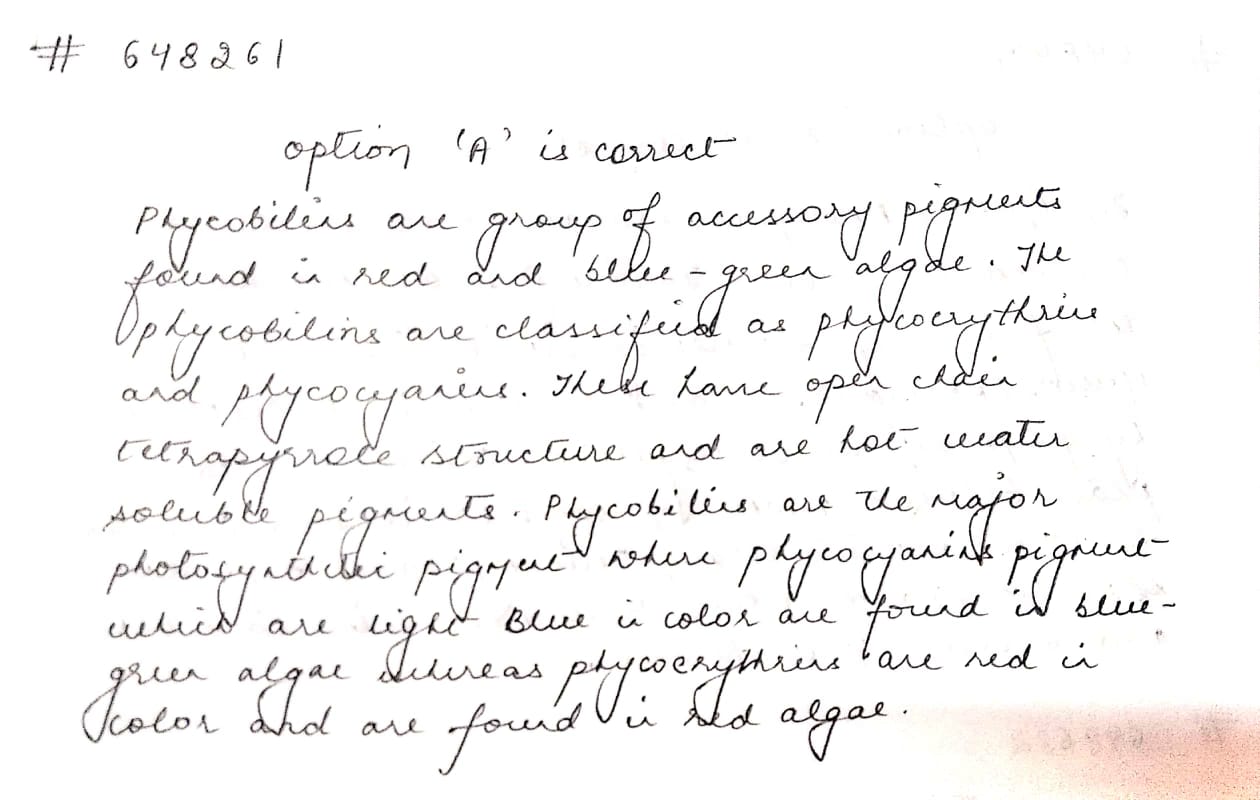 # 648261
option 'A' is correct
Phycobilins are group of accessory pigments
found in red and blue-green algae. The
phycobilins are classified as phycocrythrins
and phycocyanins. These have open chain
tetrapyrrole structure and are hot water
soluble pigments. Phycobilins are the major
photosynthetic pigment where phycocyanins pigment
which are light Blue in color are found in blue-
green algae whereas phycoerythrins are red in
color and are found in red algae.